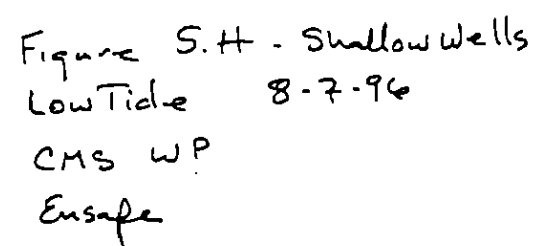 Figure 5.H - Shallow Wells
Low Tide 8-7-96
CMS WP
Ensafe